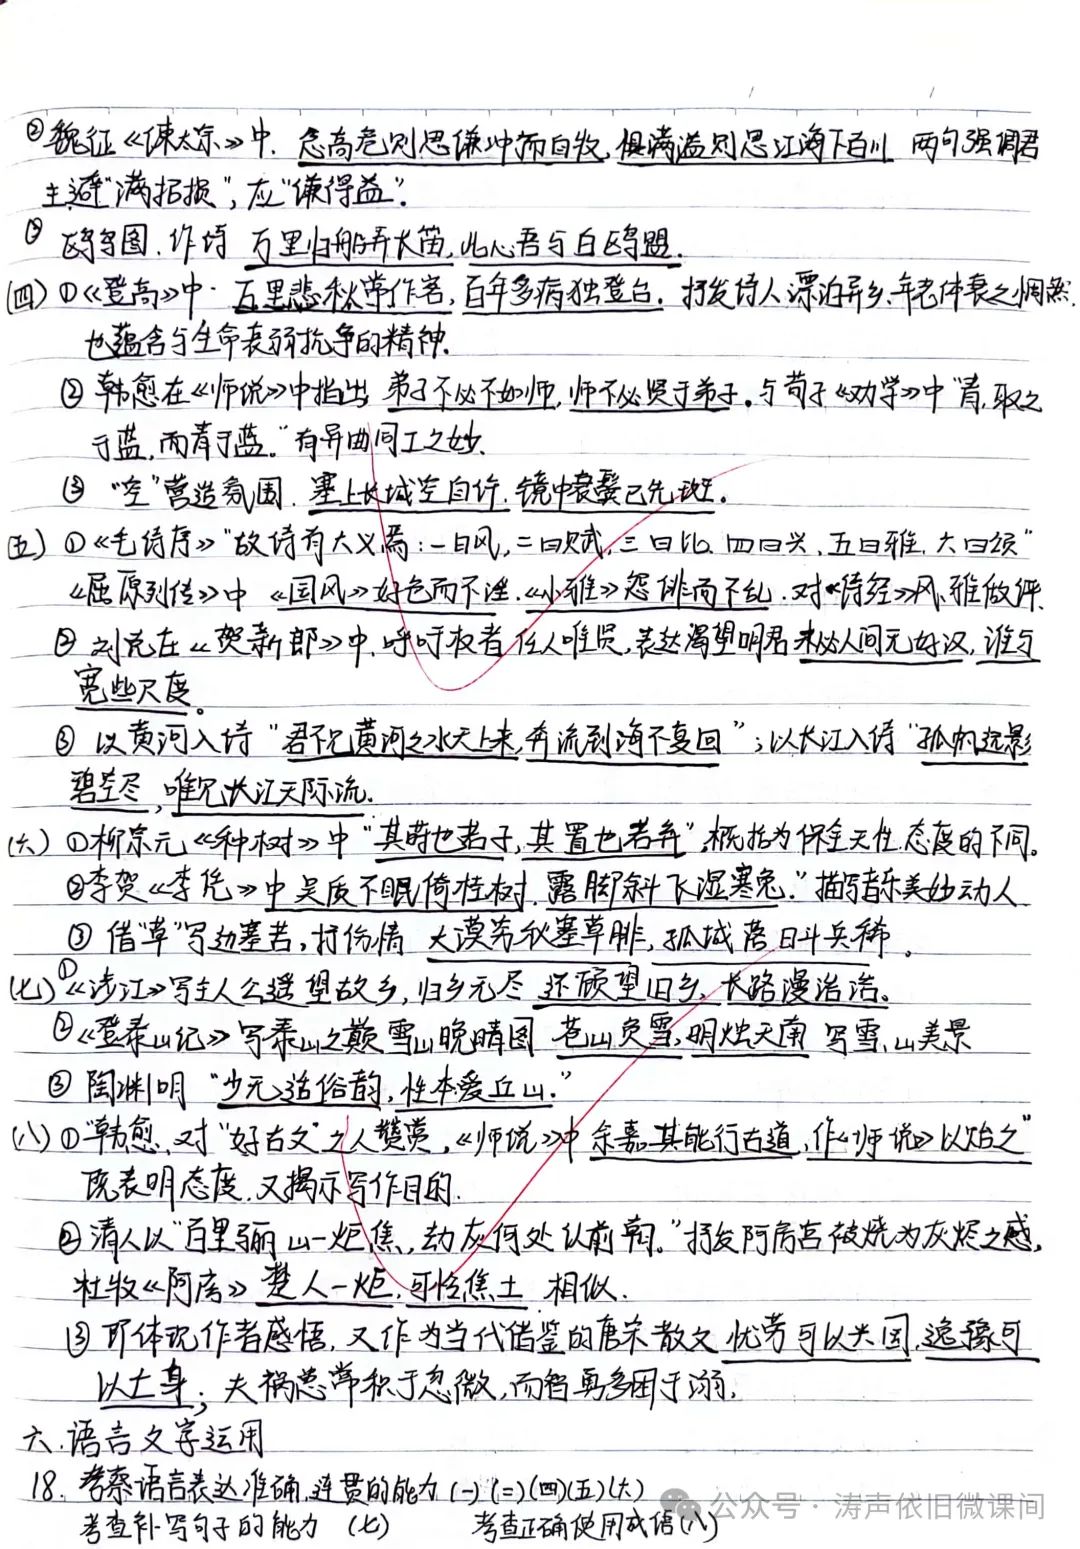 ②魏征《谏太宗》中，念高危则思谦冲而自牧，惧满溢则思江海下百川 两句强调君
主避"满招损"，应"谦得益"。
③ 鸥鸟图，作诗 万里归船弄长笛，此心吾与白鸥盟.
(四)①《登高》中·万里悲秋常作客，百年多病独登台．抒发诗人漂泊异乡、年老体衰之惆怅，
也蕴含与生命衰弱抗争的精神.
②韩愈在《师说》中指出 弟子不必不如师，师不必贤于弟子。与荀子《劝学》中"青，取之
于蓝，而青于蓝。"有异曲同工之妙.
③ "空"营造氛围．塞上长城空自许，镜中衰鬓已先斑。
(五)①《毛诗序》"故诗有六义焉：一曰风，二曰赋，三曰比，四曰兴，五曰雅，六曰颂"
《屈原列传》中《国风》好色而不淫，《小雅》怨诽而不乱．对《诗经》风、雅做评.
②刘克在《贺新郎》中，呼吁权者任人唯贤，表达渴望明君 未必人间无好汉，谁与
宽些尺度。
③以黄河入诗"君不见黄河之水天上来，奔流到海不复回"；以长江入诗"孤帆远影
碧空尽，唯见长江天际流.
(六)①柳宗元《种树》中"其莳也若子，其置也若弃"，概括为保全天性，态度的不同。
②李贺《李凭》中吴质不眠倚桂树．露脚斜飞湿寒兔．"描写音乐美妙动人
③借"草"写边塞苦，抒伤情 大漠穷秋塞草腓，孤城落日斗兵稀。
(七)①《涉江》写主人公遥望故乡，归乡无尽 还顾望旧乡，长路漫浩浩。
②《登泰山记》写泰山之巅雪山晚晴图 苍山负雪，明烛天南 写雪，山美景
③陶渊明"少无适俗韵，性本爱丘山．"
(八)①"韩愈，对"好古文"之人赞赏，《师说》中 余嘉其能行古道，作《师说》以贻之"
既表明态度，又揭示写作目的.
②清人以"百里骊山一炬焦，劫灰何处认前朝。"抒发阿房宫被烧为灰烬之感，
杜牧《阿房》 楚人一炬，可怜焦土 相似.
③即体现作者感悟，又作为当代借鉴的唐宋散文 忧劳可以兴国，逸豫可
以亡身；夫祸患常积于忽微，而智勇多困于溺.
六．语言文字运用
18．考察语言表达准确，连贯的能力(一)(二)(四)(五)(六)
考查补写句子的能力 (七) 考查正确使用成语(八)
公众号·涛声依旧微课间